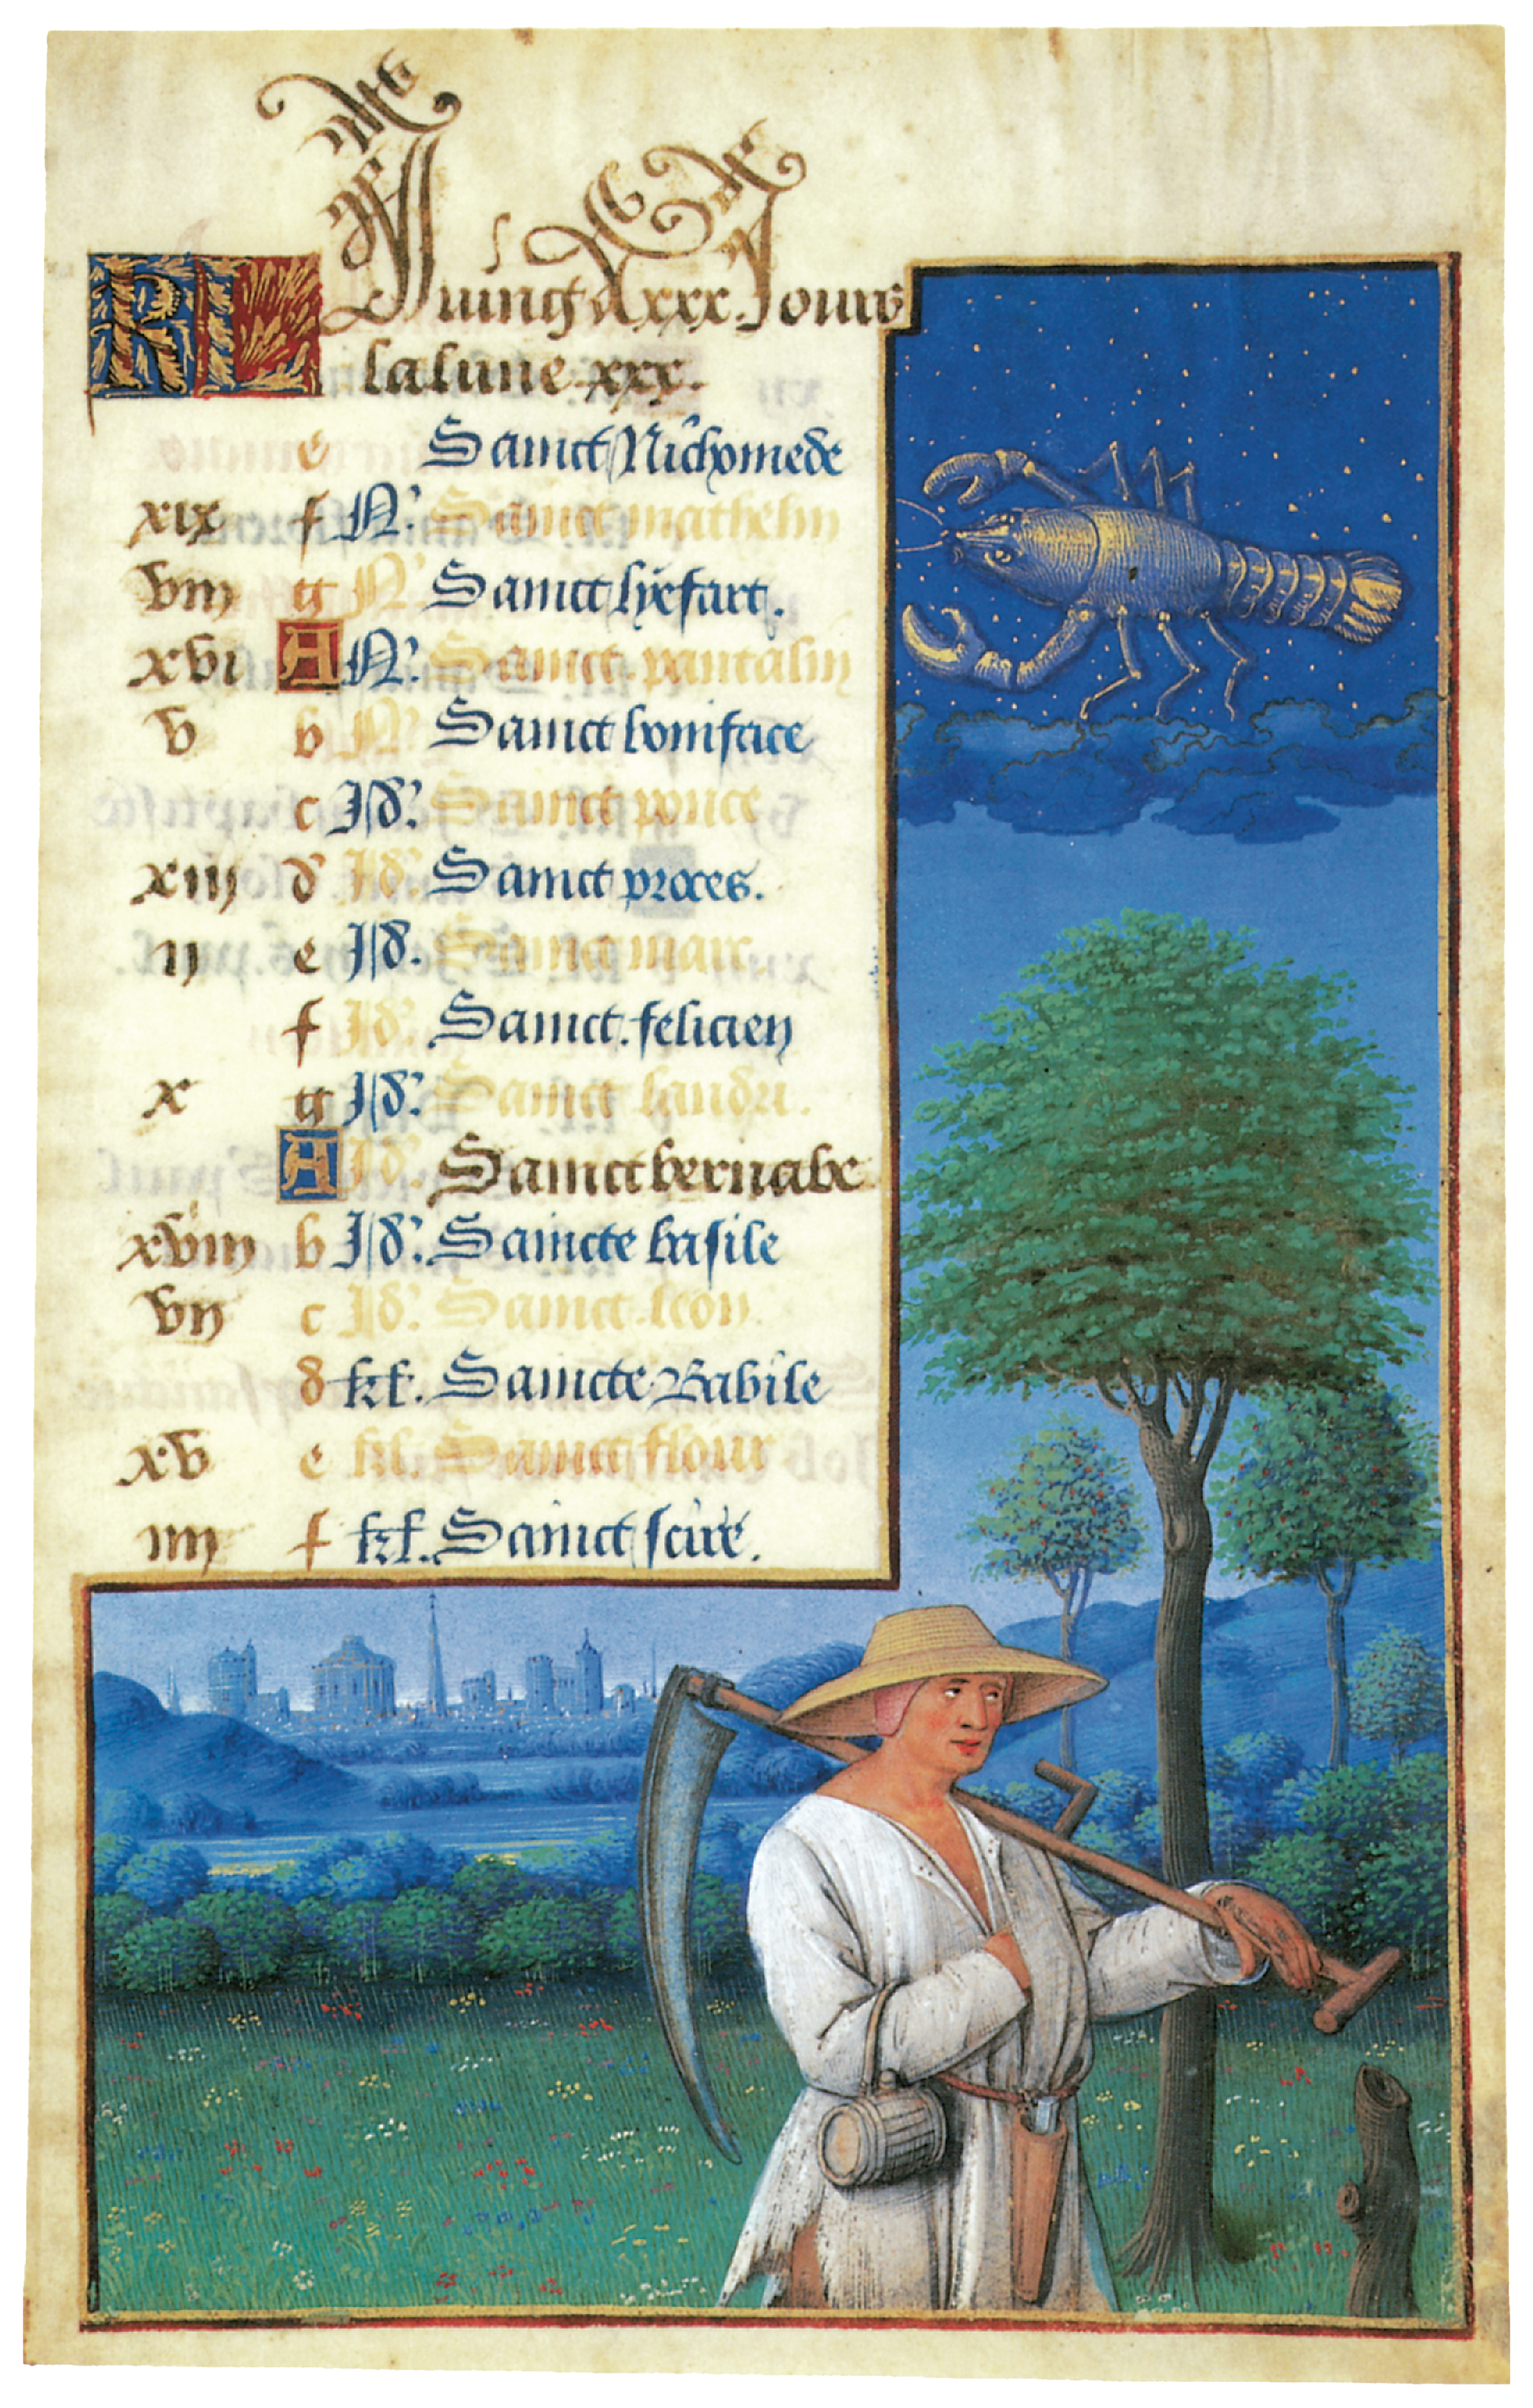 KL Juing a xxx. Jours
la lune xxx.
e Sainct Nichomede
xix f N. Sainct mathelin
viii g N. Sainct lyefart.
xvi A N. Sainct pantalin
v b N. Sainct boniface
c Id. Sainct
xiii d Id. Sainct proces.
ii e Id. Sainct marc.
f Id. Sainct. felicien
x g Id. Sainct landri.
A Id. Sainct bernabe
xviii b Id. Saincte basile
vii c Id. Sainct leon.
d kl. Saincte Babile
xv e kl. Sainct flour
iiii f kl. Sainct